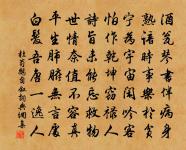 酒瓮琴書伴病身
熟諳時事樂於貧
寧為宇宙閒吟客
怕作乾坤竊祿人
詩旨未能忘救物
世情奈值不容真
平生肺腑無言處
白髮吾唐一逸人
杜荀鶴自敘詞典網